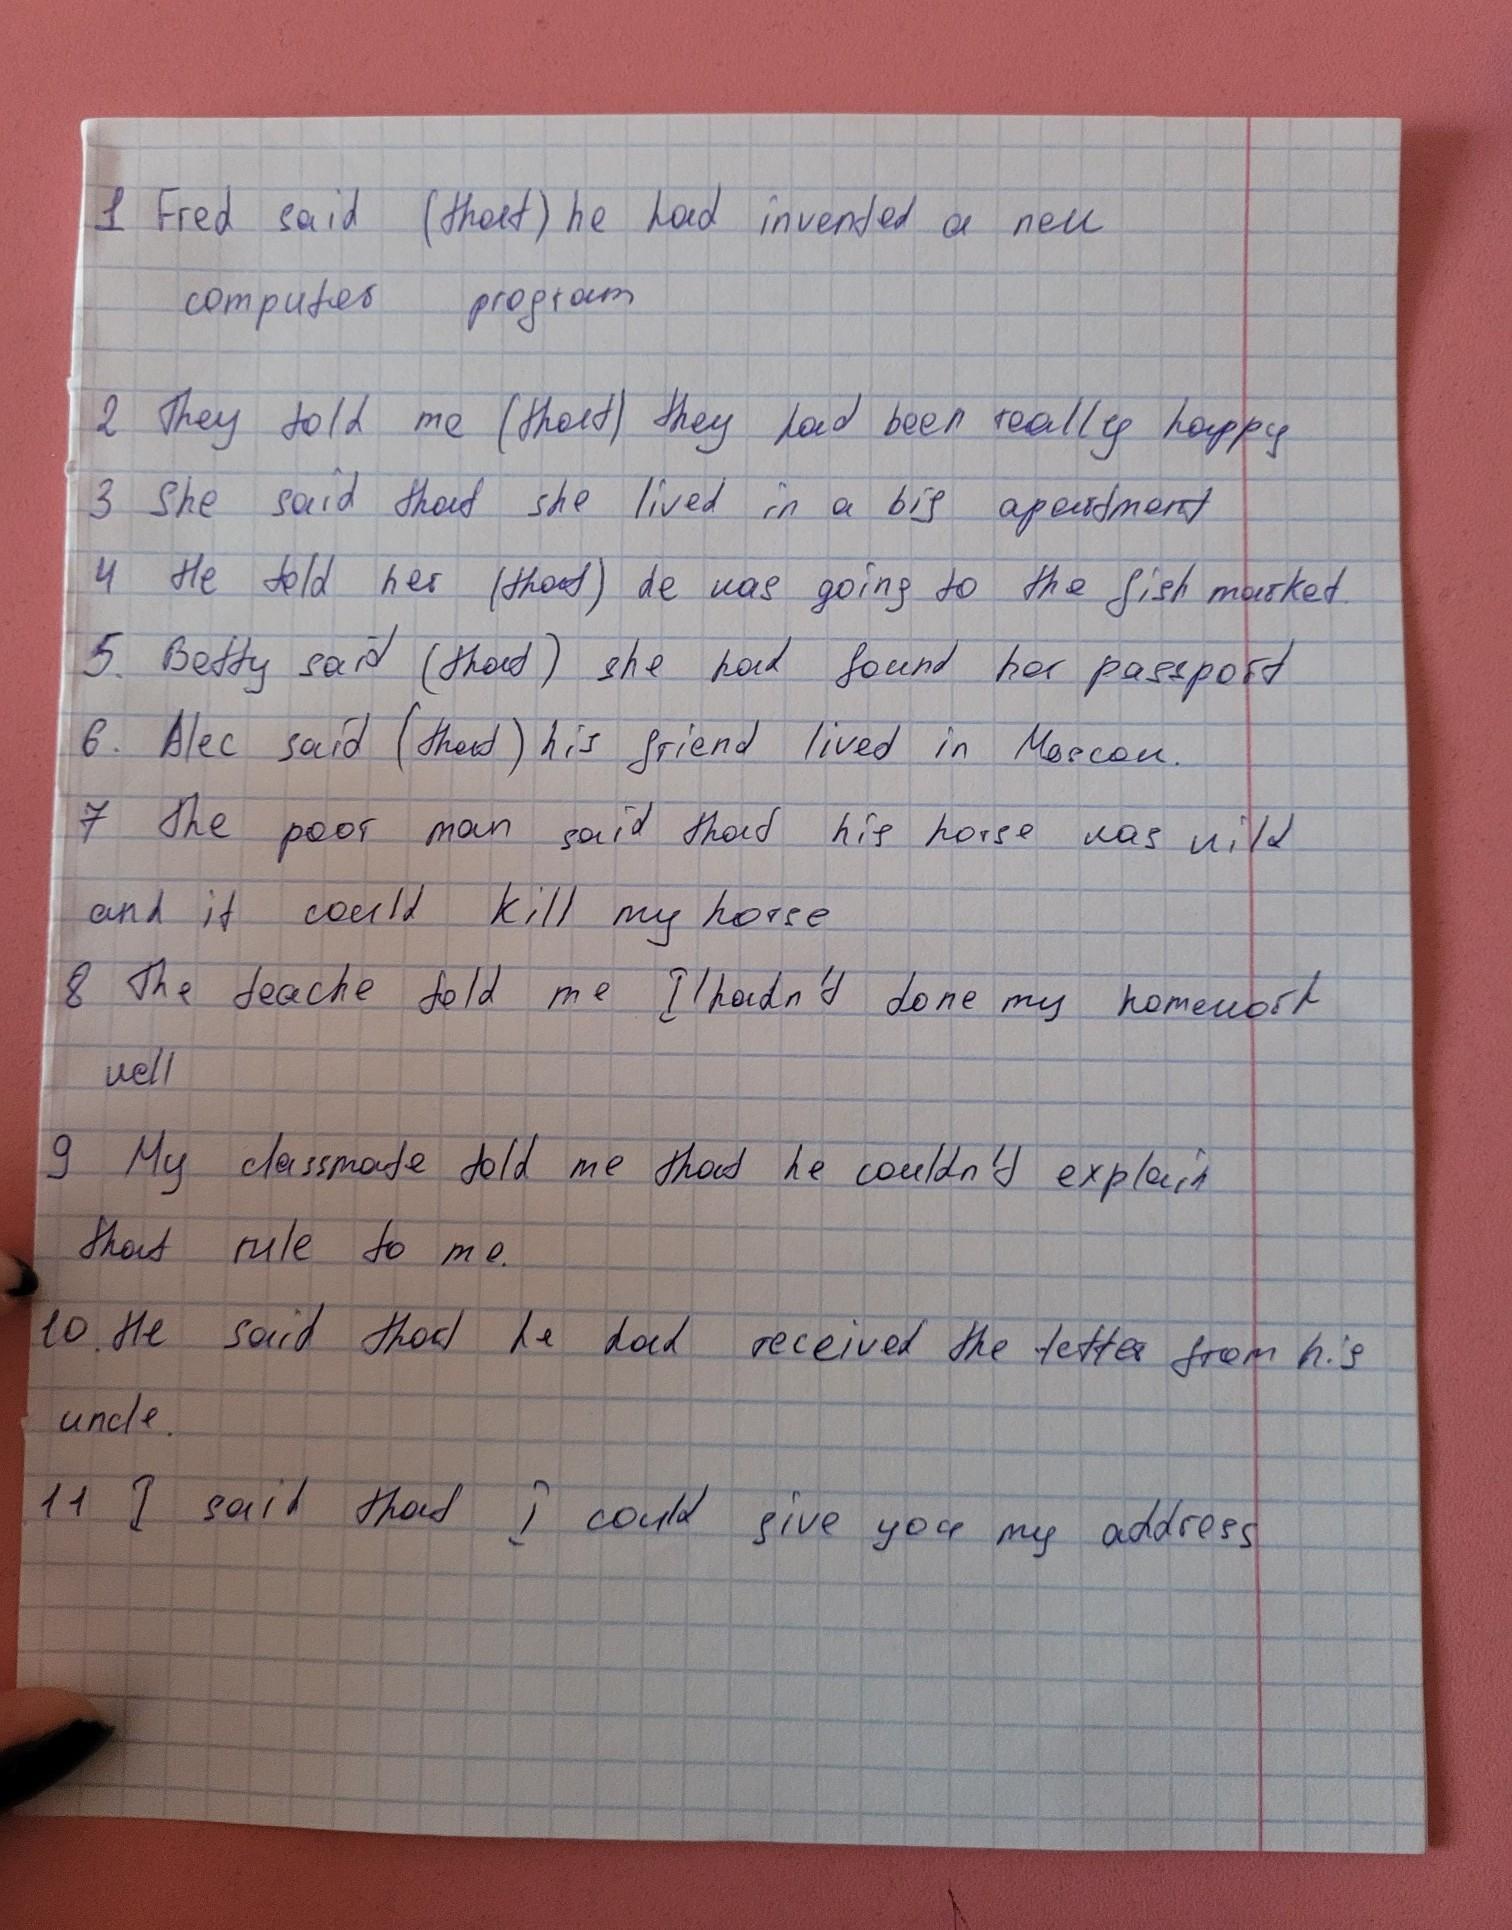 1 Fred said (that) he had invented a new
computer program
2 They told me (that) they had been really happy
3 She said that she lived in a big apartment
4 He told her (that) he was going to the fish market.
5. Betty said (that) she had found her passport
6. Alec said (that) his friend lived in Moscow.
7 The poor man said that his horse was wild
and it could kill my horse
8 The teache told me I hadn't done my homework
well
9 My classmate told me that he couldn't explain
that rule to me.
10. He said that he had received the letter from his
uncle.
11 I said that I could give you my address